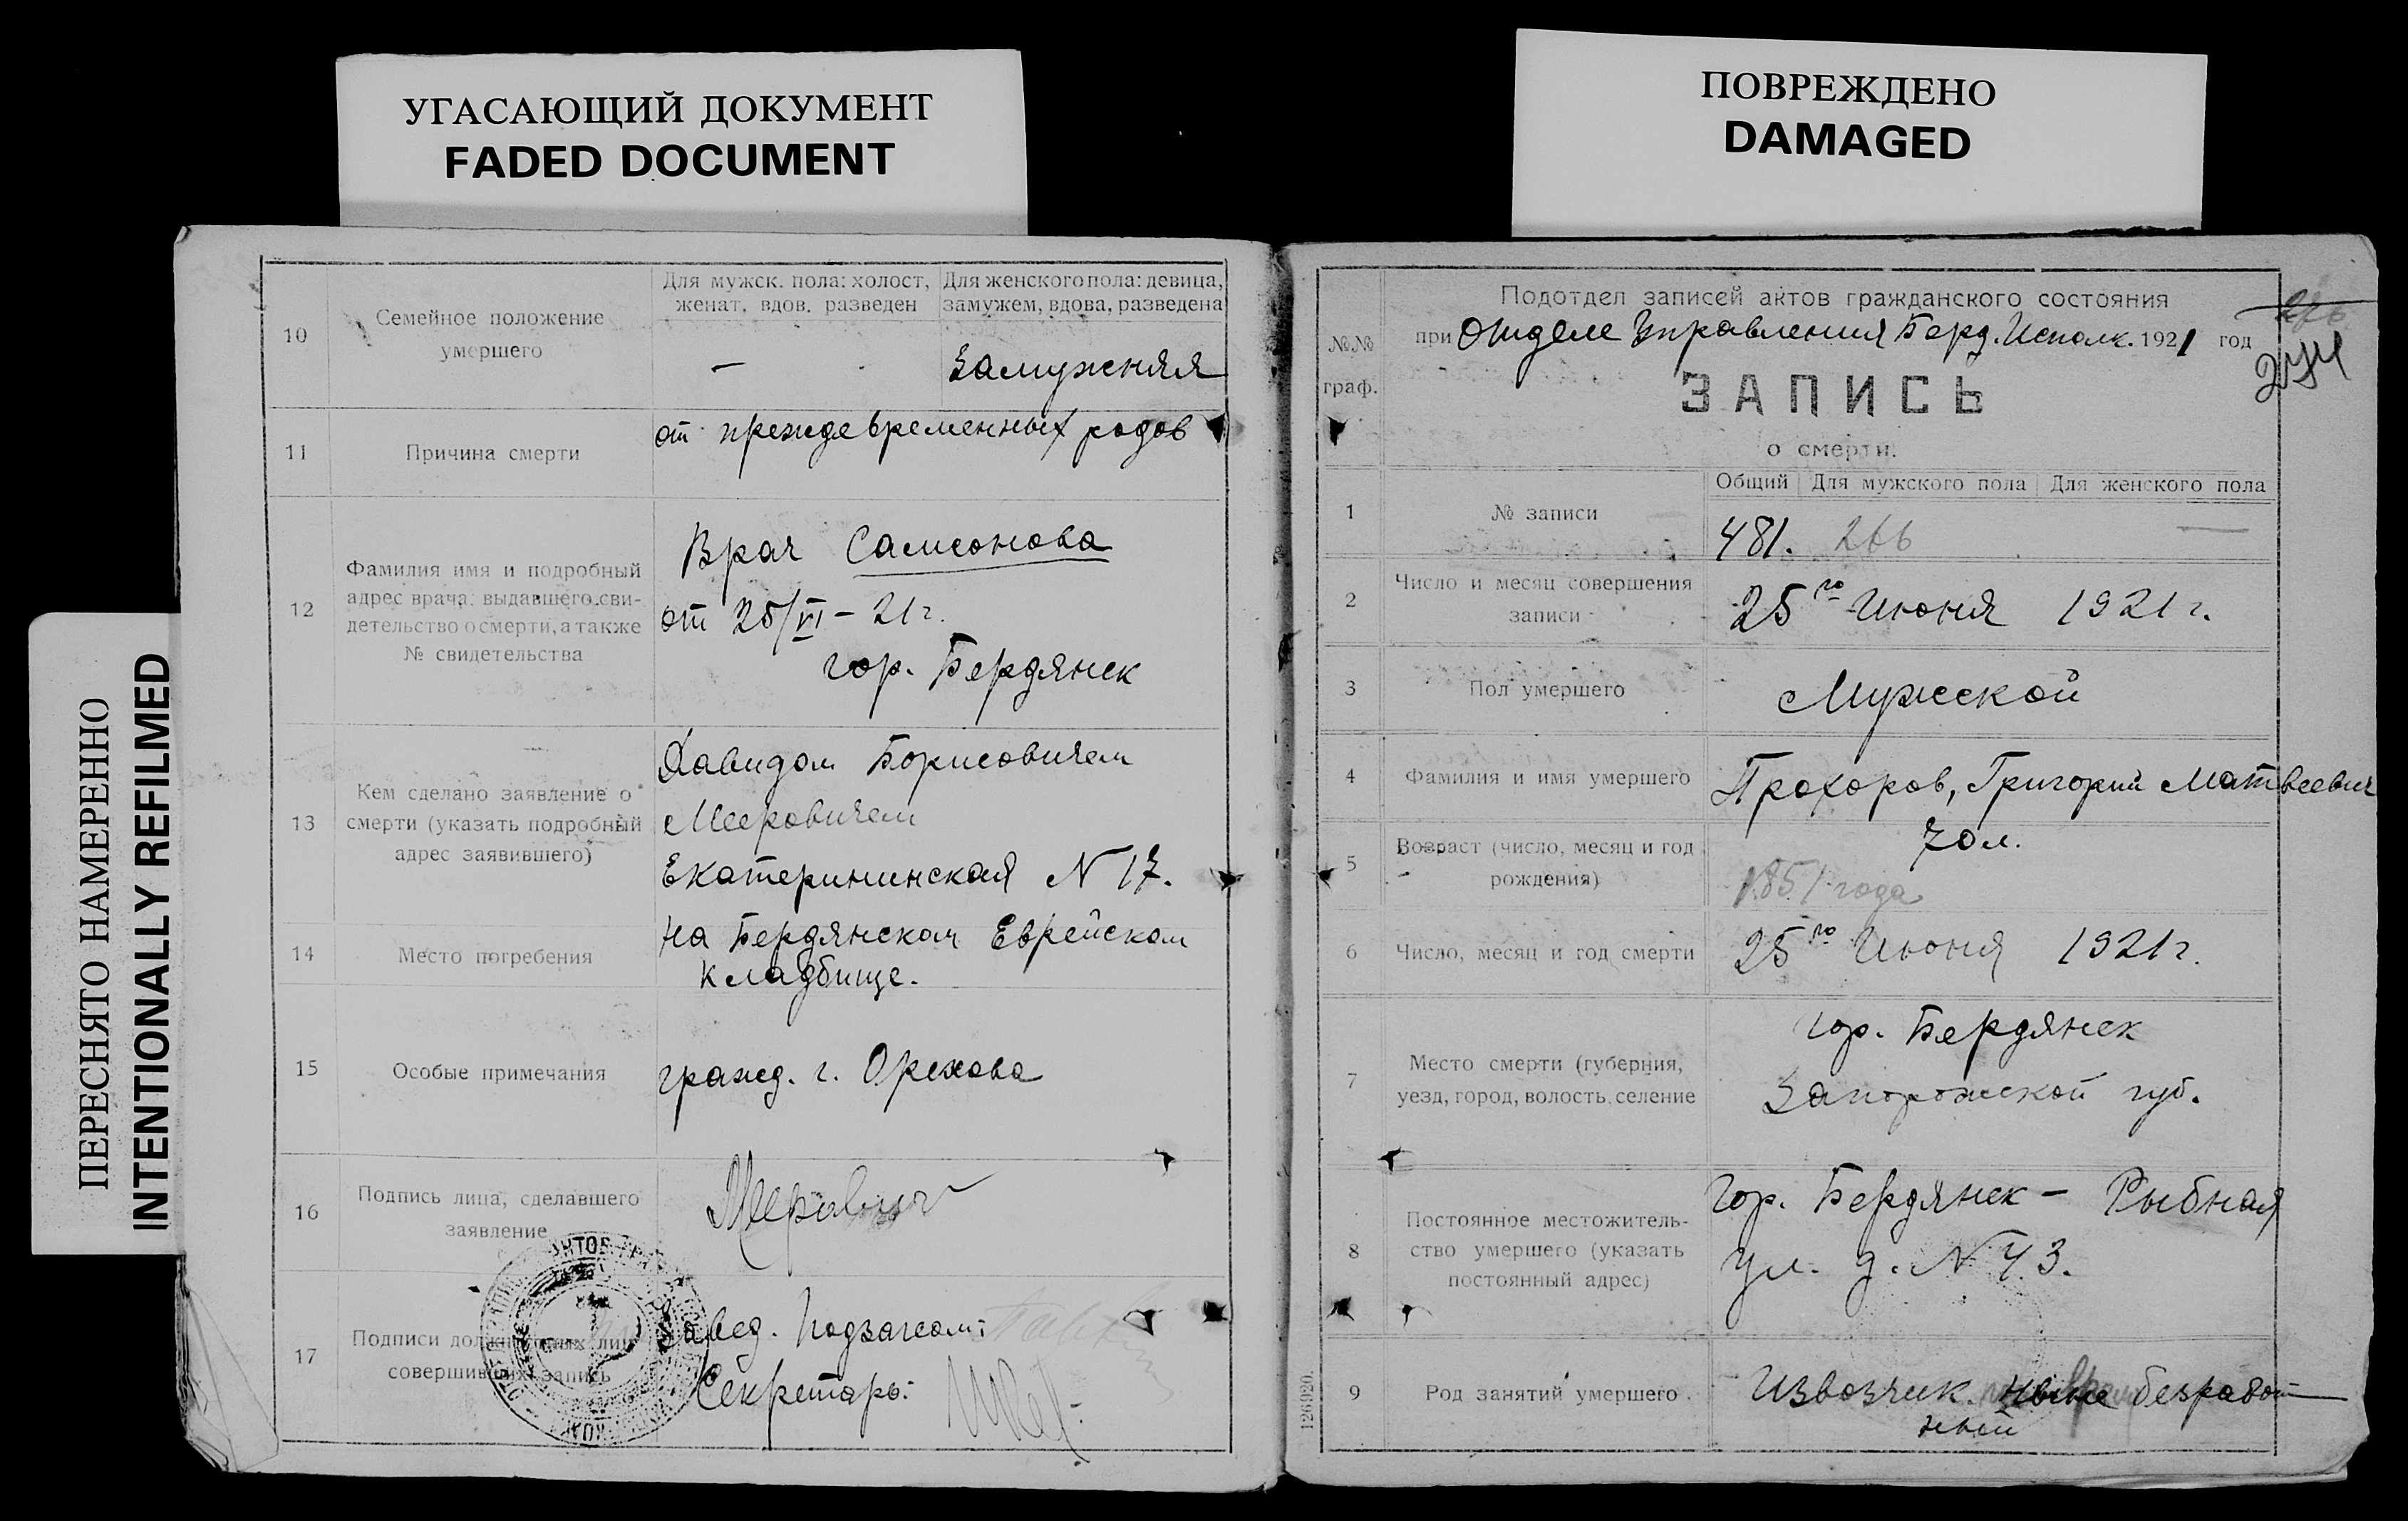 УГАСАЮЩИЙ ДОКУМЕНТ
FADED DOCUMENT
ПОВРЕЖДЕНО
DAMAGED
ПЕРЕСНЯТО НАМЕРЕННО
INTENTIONALLY REFILMED
10
Семейное положение
умершего
Для мужск. пола: холост,
женат, вдов. разведен
Для женского пола: девица,
замужем, вдова, разведена
—
Замужняя
11
Причина смерти
от преждевременных родов
12
Фамилия имя и подробный
адрес врача, выдавшего сви-
детельство о смерти, а также
№ свидетельства
Врач Самсонова
от 25/VI – 21 г.
гор. Бердянск
13
Кем сделано заявление о
смерти (указать подробный
адрес заявившего)
Давидом Борисовичем
Мееровичем
Екатерининская N 17.
14
Место погребения
на Бердянском Еврейском
кладбище.
15
Особые примечания
гражд. г. Орехова
16
Подпись лица, сделавшего
заявление
Мерович
17
Подписи должностных лиц
совершивших запись
Завед. Подзагсом:
Секретарь:
№№
граф.
Подотдел записей актов гражданского состояния
при Отделе Управления Берд. Исполк. 1921 год
274
ЗАПИСЬ
о смерти.
1
№ записи
Общий Для мужского пола Для женского пола
481. 266 —
2
Число и месяц совершения
записи
25го Июня 1921 г.
3
Пол умершего
Мужской
4
Фамилия и имя умершего
Прохоров, Григорий Матвеевич
5
Возраст (число, месяц и год
рождения)
70 л.
1851 года
6
Число, месяц и год смерти
25го Июня 1921 г.
7
Место смерти (губерния,
уезд, город, волость, селение
гор. Бердянск
Запорожской губ.
8
Постоянное местожитель-
ство умершего (указать
постоянный адрес)
Гор. Бердянск – Рыбная
ул. д. N 43.
9
Род занятий умершего
Извозчик. ныне безработ
ный
126920.